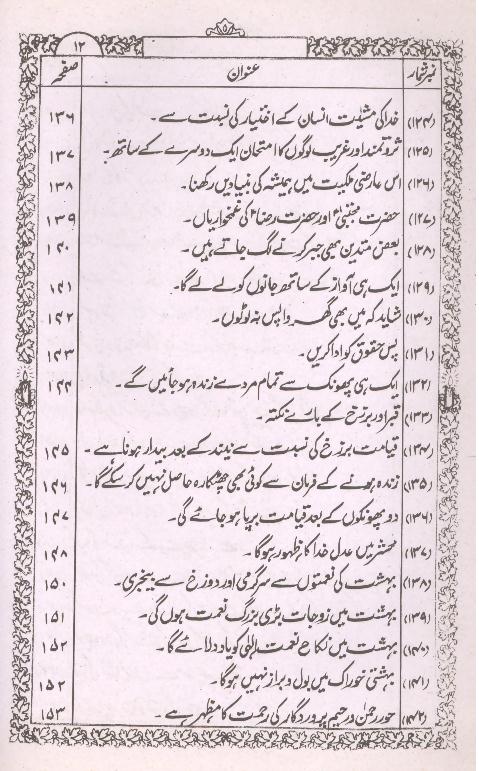 ۱۲
نمبر شمار عنوان صفحہ
(۱۲۴) خدا کی مشیّت انسان کے اختیار کی نسبت سے۔ ۱۳۶
(۱۲۵) ثروتمند اور غریب لوگوں کا امتحان ایک دوسرے کے ساتھ۔ ۱۳۷
(۱۲۶) اس عارضی ملکیت میں ہمیشہ کی بنیادیں رکھنا۔ ۱۳۸
(۱۲۷) حضرت مجتبیٰؑ اور حضرت رضاؑ کی غمخواریاں۔ ۱۳۹
(۱۲۸) بعض متدین بھی جبر کرنے لگ جاتے ہیں۔ ۱۴۰
(۱۲۹) ایک ہی آواز کے ساتھ جانوں کو لے لے گا۔ ۱۴۱
(۱۳۰) شاید کہ میں بھی گھر واپس نہ لوٹوں۔ ۱۴۲
(۱۳۱) پس حقوق کو ادا کریں۔ ۱۴۳
(۱۳۲) ایک ہی پھونک سے تمام مردے زندہ ہو جائیں گے۔ ۱۴۴
(۱۳۳) قبر اور برزخ کے بارے نکتہ۔
(۱۳۴) قیامت برزخ کی نسبت سے نیند کے بعد بیدار ہونا ہے۔ ۱۴۵
(۱۳۵) زندہ ہونے کے فرمان سے کوئی بھی چھٹکارہ حاصل نہیں کر سکے گا۔ ۱۴۶
(۱۳۶) دو پھونکوں کے بعد قیامت برپا ہو جائے گی۔ ۱۴۷
(۱۳۷) محشر میں عدل خدا کا ظہور ہوگا۔ ۱۴۸
(۱۳۸) بہشت کی نعمتوں سے سرگرمی اور دوزخ سے بیخبری۔ ۱۵۰
(۱۳۹) بہشت میں زوجات بڑی بزرگ نعمت ہوں گی۔ ۱۵۱
(۱۴۰) بہشت میں نکاح نعمت الٰہی کو یاد دلائے گا۔ ۱۵۲
(۱۴۱) بہشتی خوراک میں بول و براز نہیں ہوگا۔ ۱۵۲
(۱۴۲) حور رحمٰن و رحیم پروردگار کی رحمت کا مظہر ہے۔ ۱۵۳